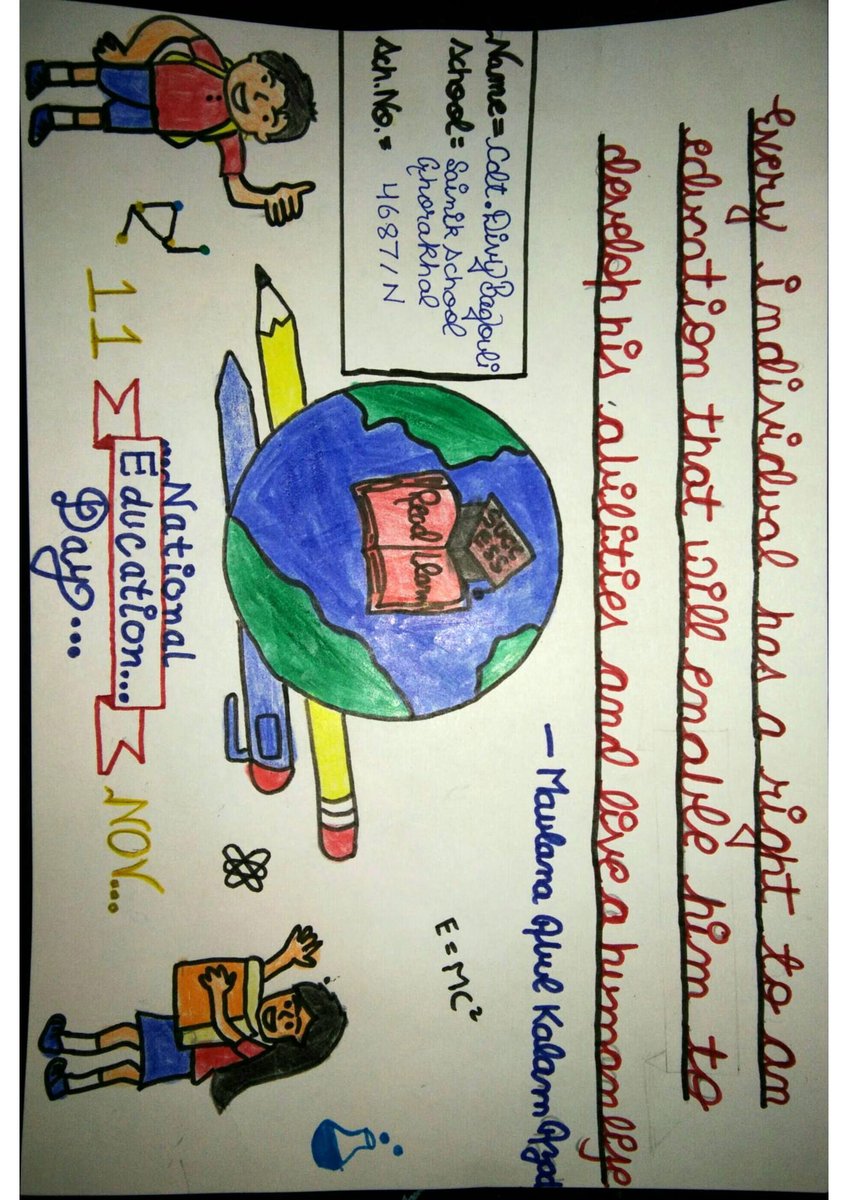 Every individual has a right to an
education that will enable him to
develop his abilities and live a human life
— Maulana Abul Kalam Azad
Name = Cdt. Divy
School = Sainik School
Ghorakhal
Sch. No. = 4687/N
E = MC²
SUCC
ESS
Read Learn
11
National
Education...
Day...
NOV....